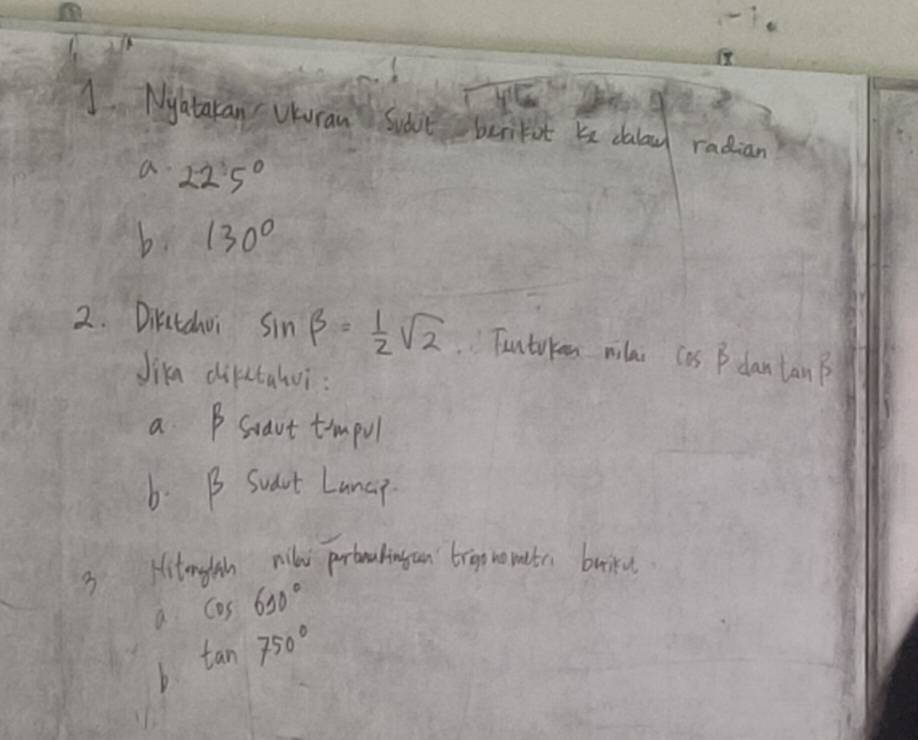 1. Nyatakan ukuran sudut berikut ke dalam radian
a. 22'5°
b. 130°
2. Diketahui sin β = 1/2 √2. Tentukan nilai cos β dan tan β
Jika diketahui:
a. β sudut tumpul
b. β sudut Lancip.
3 Hitunglah nilai perbandingan trigonometri berikut.
a cos 690°
b tan 750°